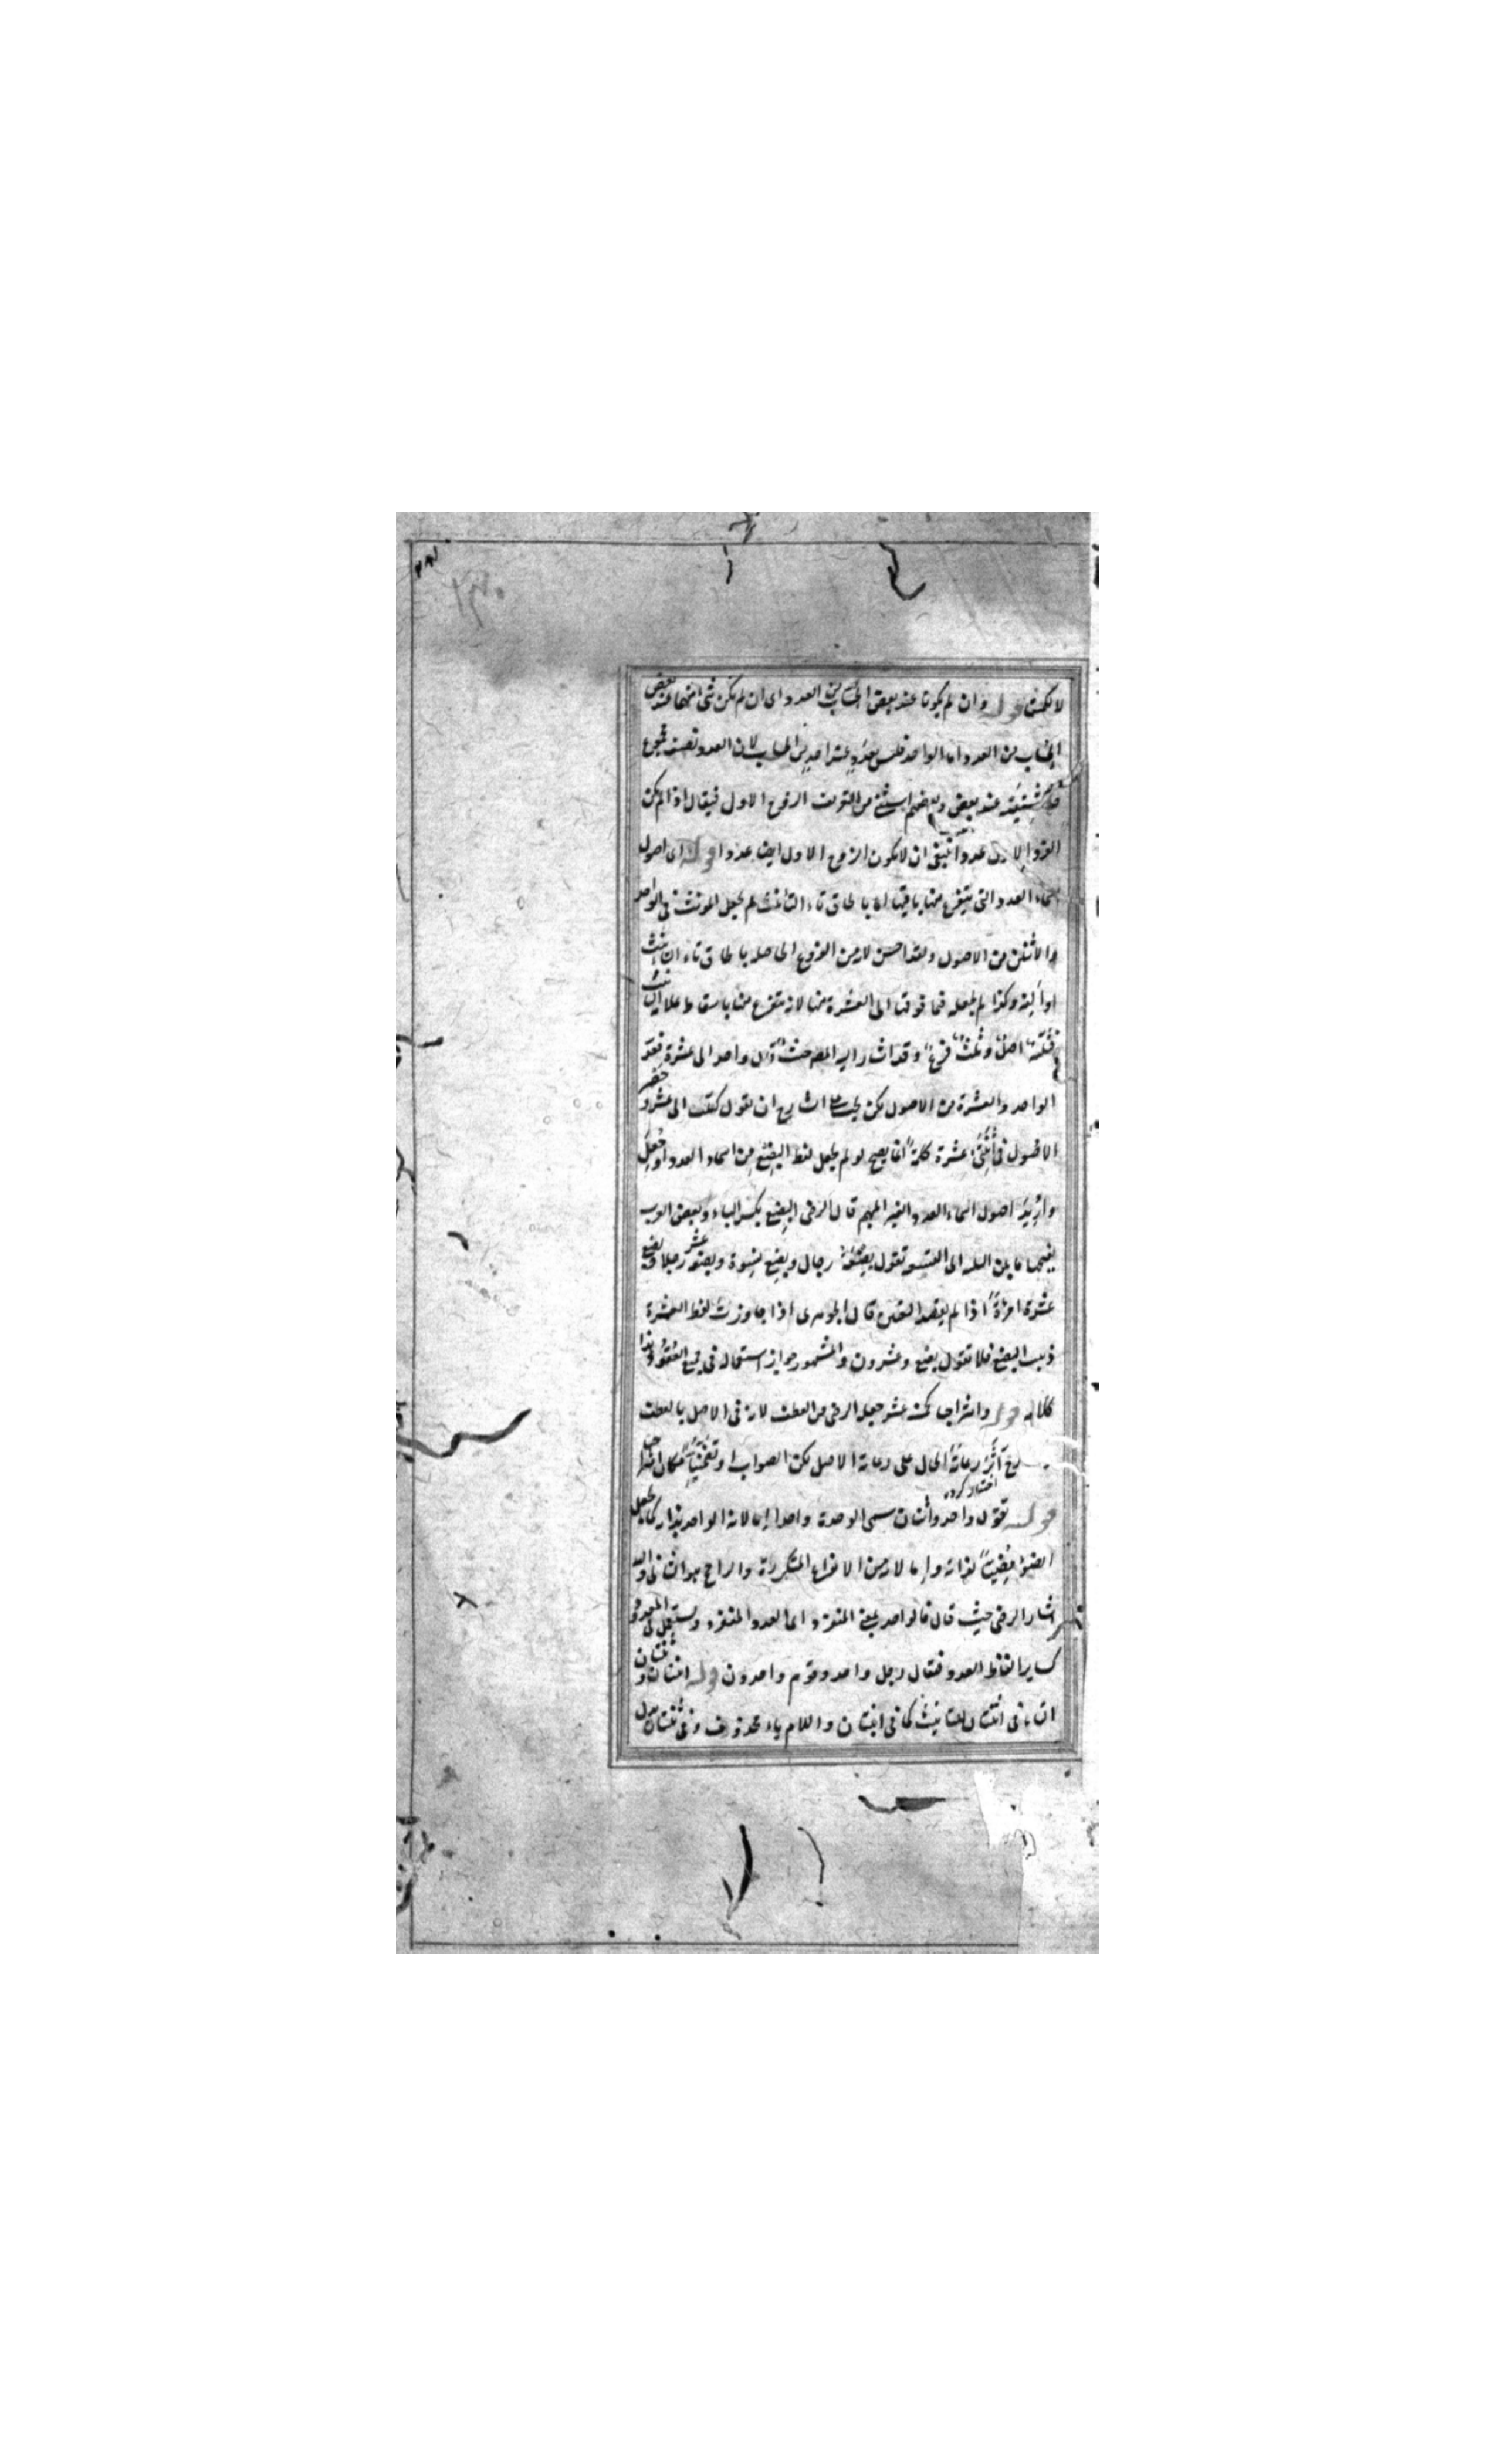 لا لكمية قوله وان لم يكونا عند بعض الحساب من العدد اى ان لم يكن شئ منهما عند بعض
الحساب من العدد اما الواحد فليس بعدد عند احد من الحساب لان العدد نصف مجموع
حاشيتيه عند بعض وبعضهم من التعريف الزوج الاول فيقال اذا لم يكن
الفرد الاول عددا ينبغى ان لا يكون الزوج الاول ايضا عددا قوله اى اصول
اسماء العدد التى يتفرع منها باقيها اما بالحاق تاء التانيث لم يجعل المونث فى الواحد
والاثنين من الاصول ولقد احسن لانه من الفروع الحاصلة بالحاق تاء التانيث
وكذا لم يجعله فيما فوقها الى العشرة منها لانه متفرع منها باسقاط علامة التانيث
فثلثة اصل وثلث فرع وقد اشار اليه المصـ حيث قال واحد الى عشرة فعد
الواحد والعشرة من الاصول لكن يجب على الشارح ان يقول كقلت الى عشرة وحصر
الاصول فى اثنتى عشرة كلمة انما يصح لو لم يجعل لفظ البضع من اسماء العدد او جعل
واريد اصول اسماء العدد الغير المبهم قال الرضى البضع بكسر الباء وبعض العرب
يفتحها ما بين الثلثة الى التسعة تقول بضعة رجال وبضع نسوة وبضعة عشر رجلا وبضع
عشرة امرأة اذا لم يقصد التعيين قال الجوهرى اذا جاوزت لفظ العشرة
ذهب البضع فلا تقول بضع وعشرون والمشهور جواز استعماله فى جميع العقود هذا
كلامه قوله وامتزاجا كخمسة عشر جعله الرضى من العطف لانه فى الاصل بالعطف
رح آثر رعاية الحال على رعاية الاصل لكن الصواب او تضمنيا مكان امتزاجا
اختيار كرده
قوله تقول واحد واثنان سمى الوحدة واحدا اما لانه الواحد بذاته كما جعل
الضوء مضيئا لذاته واما لانه من الانواع المتكررة والراجح هو الثانى واليه
اشار الرضى حيث قال فالواحد بمعنى المنفرد اى العدد المنفرد ويستعمل فى المعدود
كسائر الفاظ العدد فيقال رجل واحد وقوم واحدون قوله اثنتان وثنتان
التاء فى اثنتان للتانيث كما فى ابنتان واللام ياء محذوف وفى ثنتان بدل